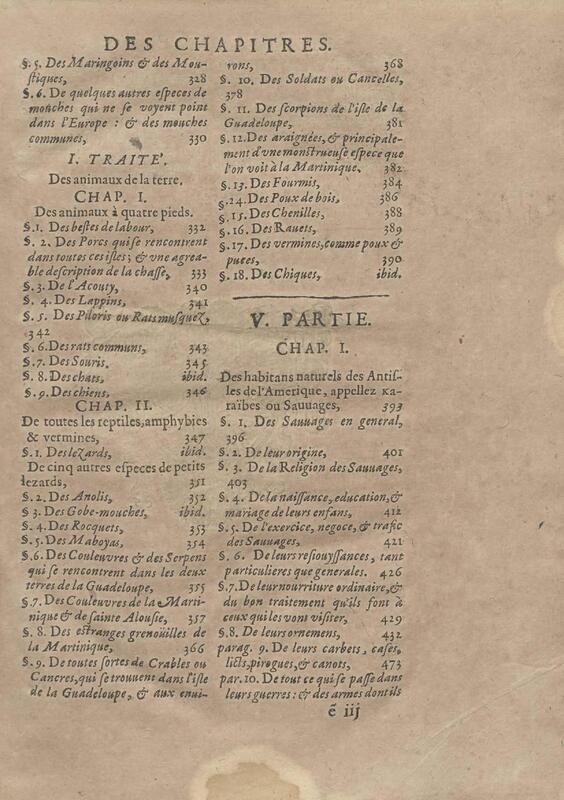 DES CHAPITRES.
§. 5. Des Maringoins & des Mou-
stiques, 328
§. 6. De quelques autres especes de
mouches qui ne se voyent point
dans l'Europe : & des mouches
communes, 330
I. TRAITE'.
Des animaux de la terre.
CHAP. I.
Des animaux à quatre pieds.
§. 1. Des bestes de labour, 332
§. 2. Des Porcs qui se rencontrent
dans toutes ces isles ; & vne agrea-
ble description de la chasse, 333
§. 3. De l'Acouty, 340
§. 4. Des Lappins, 341
§. 5. Des Piloris ou Rats musquez,
342
§. 6. Des rats communs, 343
§. 7. Des Souris. 345
§. 8. Des chats, ibid.
§. 9. Des chiens, 346
CHAP. II.
De toutes les reptiles, amphybies
& vermines, 347
§. 1. Des lezards, ibid.
De cinq autres especes de petits
lezards, 351
§. 2. Des Anolis, 352
§ 3. Des Gobe-mouches, ibid.
§. 4. Des Rocquets, 353
§. 5. Des Maboyas, 354
§. 6. Des Couleuvres & des Serpens
qui se rencontrent dans les deux
terres de la Guadeloupe, 355
§. 7. Des Couleuvres de la Marti-
nique & de sainte Alousie, 357
§. 8. Des estranges grenoüilles de
la Martinique, 366
§. 9. De toutes sortes de Crables ou
Cancres, qui se trouuent dans l'isle
de la Guadeloupe, & aux enui-
rons, 368
§. 10. Des Soldats ou Cancelles,
378
§. 11. Des scorpions de l'isle de la
Guadeloupe, 381
§. 12. Des araignées, & principale-
ment d'vne monstrueuse espece que
l'on voit à la Martinique. 382
§. 13. Des Fourmis, 384
§. 24. Des Poux de bois, 386
§. 15. Des Chenilles, 388
§. 16. Des Rauets, 389
§. 17. Des vermines, comme poux &
puces, 390
§. 18. Des Chiques, ibid.
V. PARTIE.
CHAP. I.
Des habitans naturels des Antis-
les de l'Amerique, appellez Ka-
raïbes ou Sauuages, 393
§. 1. Des Sauuages en general,
396
§. 2. De leur origine, 401
§. 3. De la Religion des Sauuages,
403
§. 4. De la naissance, education, &
mariage de leurs enfans, 412
§. 5. De l'exercice, negoce, & trafic
des Sauuages, 421
§. 6. De leurs resiouyssances, tant
particulieres que generales. 426
§. 7. De leur nourriture ordinaire, &
du bon traitement qu'ils font à
ceux qui les vont visiter, 429
§. 8. De leurs ornemens, 432
parag. 9. De leurs carbets, cases,
licts, pirogues, & canots, 473
par. 10. De tout ce qui se passe dans
leurs guerres : & des armes dont ils
ẽ iij